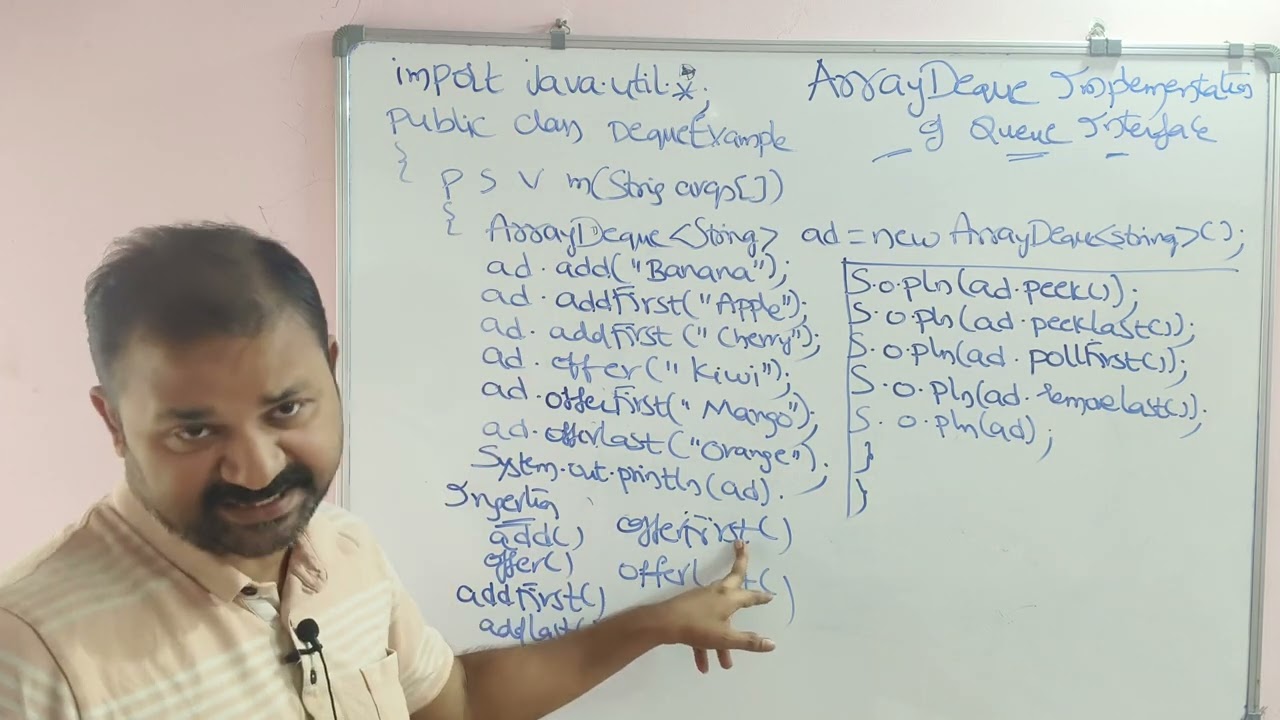 import java.util.*;
public class DequeExample
{
P S V m(String args[])
{
ArrayDeque<String> ad = new ArrayDeque<string>();
ad.add("Banana");
ad.addFirst("Apple");
ad.addFirst("Cherry");
ad.offer("Kiwi");
ad.offerFirst("Mango");
ad.offerlast("Orange");
System.out.println(ad).
Insertion
add()
offer()
addFirst()
addlast(
offerFirst()
ArrayDeque Implementation
of Queue Interface
S.o.pln(ad.peek());
S.o.pln(ad.peeklast());
S.o.pln(ad.pollFirst());
S.o.pln(ad.removelast());
S.o.pln(ad);
}
}